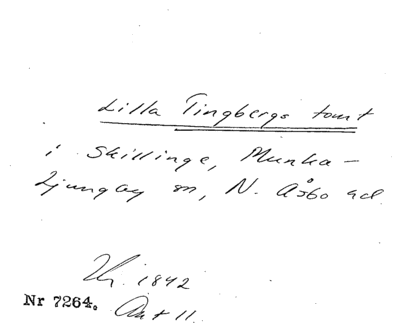 Lilla Tingbergs tomt
i Skillinge, Munka-
Ljungby sn, N. Åsbo hd.
1842
Nr 7264. Akt 11.